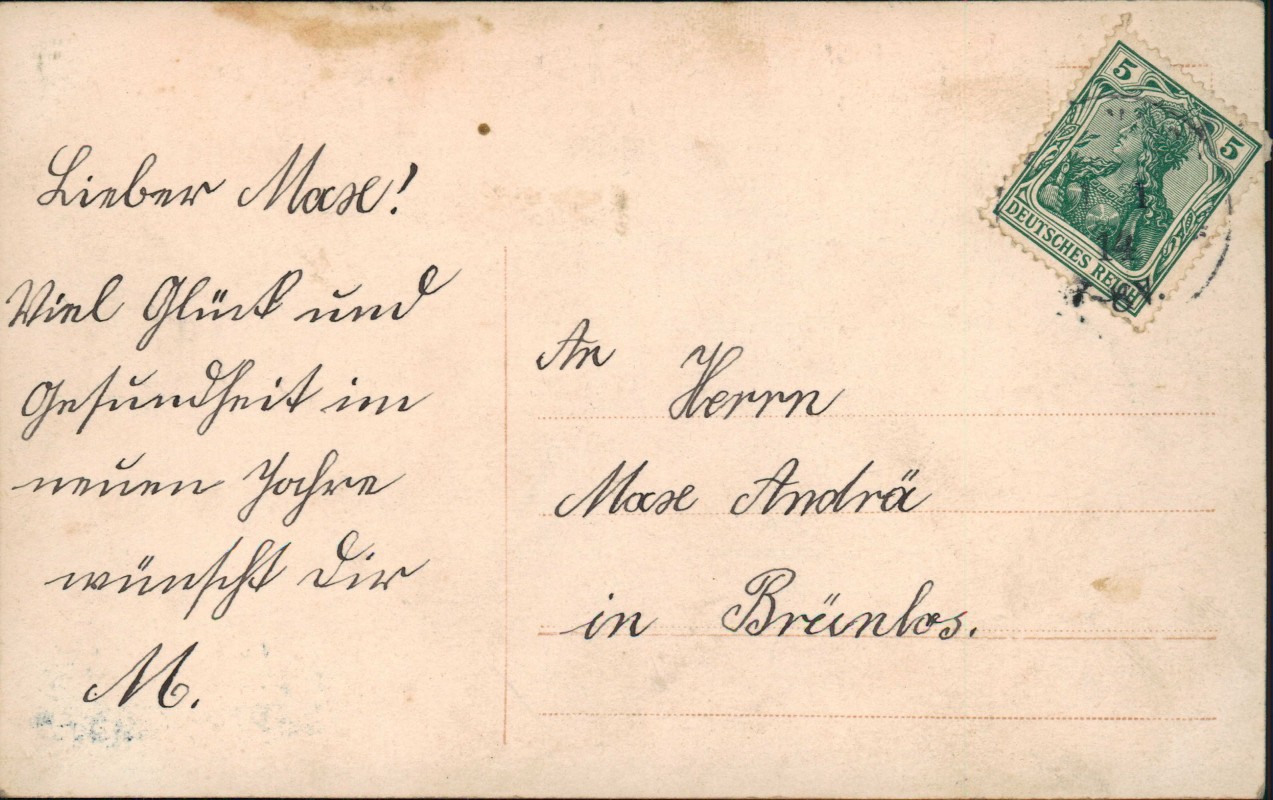 Lieber Max!
Viel Glück und
Gesundheit im
neuen Jahre
wünscht Dir
M.
5
5
DEUTSCHES REICH
1
14
An
Herrn
Max Andrä
in Brünlos.